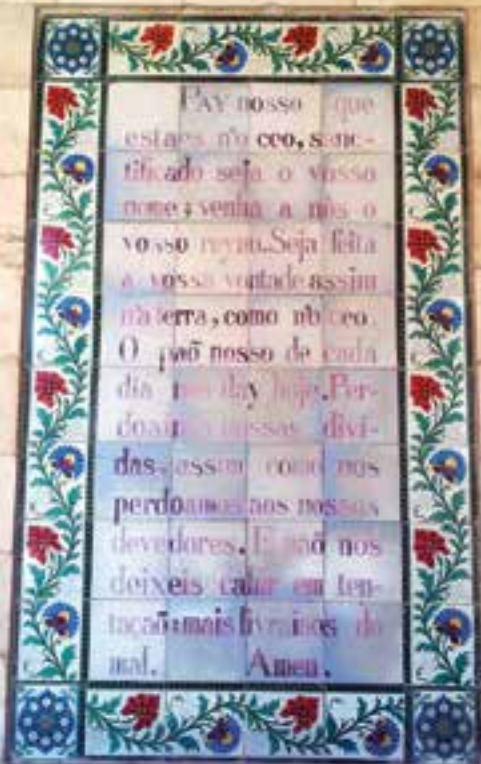 PAY nosso que
estaes n'o ceo, sanc-
tificado seja o vosso
nome; venha a nós o
vosso reyno. Seja feita
a vossa vontade assim
n'a terra, como n'o ceo.
O paõ nosso de cada
dia nos day hoje. Per-
doainos nossas divi-
das, assim como nos
perdoamos aos nossos
devedores. E naõ nos
deixeis cahir em ten-
taçaõ: mais livrainos do
mal. Amen.